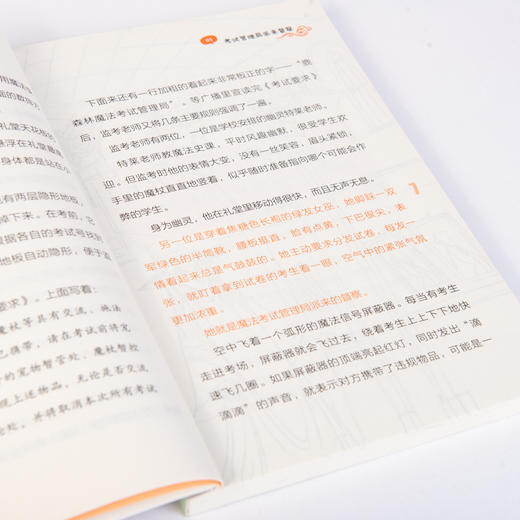 用魔法
礼堂天花板的
悬浮在礼堂最高
身体都是站在小
有两层隐形地板,
掉下来。在考前,它
根据各自的考试号找
地板自动隐形,便于监
要求》。上面写着:
魔杖等具有交流、施法
已携带,请在考试前将宠
的宠物智管处、魔杖智控
现上述物品,无论是否交流
论处,并将取消本次所有考试
01 考试管理局派来督察
下面来还有一行加粗的看起来非常板正的字——“鹿
森林魔法考试管理局”。等广播里宣读完《考试要求》
后,监考老师又将几条主要规则强调了一遍。
监考老师有两位,一位是学校安排的幽灵特莱老师。
特莱老师教魔法史课,平时风趣幽默,很受学生欢
迎。但监考时他的表情大变,没有一丝笑容,眉头紧锁,
手里的魔杖直直地竖着,似乎随时准备指向哪个可能会作
弊的学生。
身为幽灵,他在礼堂里移动得很快,而且无声无息。
另一位是穿着焦糖色长袍的绿发女巫,她脚踩一双
军绿色的半筒靴,腰板挺直,脸有点黄,下巴很尖,表
情看起来总是气鼓鼓的。她主动要求分发试卷,每发一
张,就盯着拿到试卷的考生看一眼,空气中的紧张气氛
更加浓重。
她就是魔法考试管理局派来的督察。
空中飞着一个弧形的魔法信号屏蔽器。每当有考生
走进考场,屏蔽器就会飞过去,绕着考生上上下下地快
速飞几圈。如果屏蔽器的顶端亮起红灯,同时发出“滴
滴滴”的声音,就表示对方携带了违规物品,可能是一
1